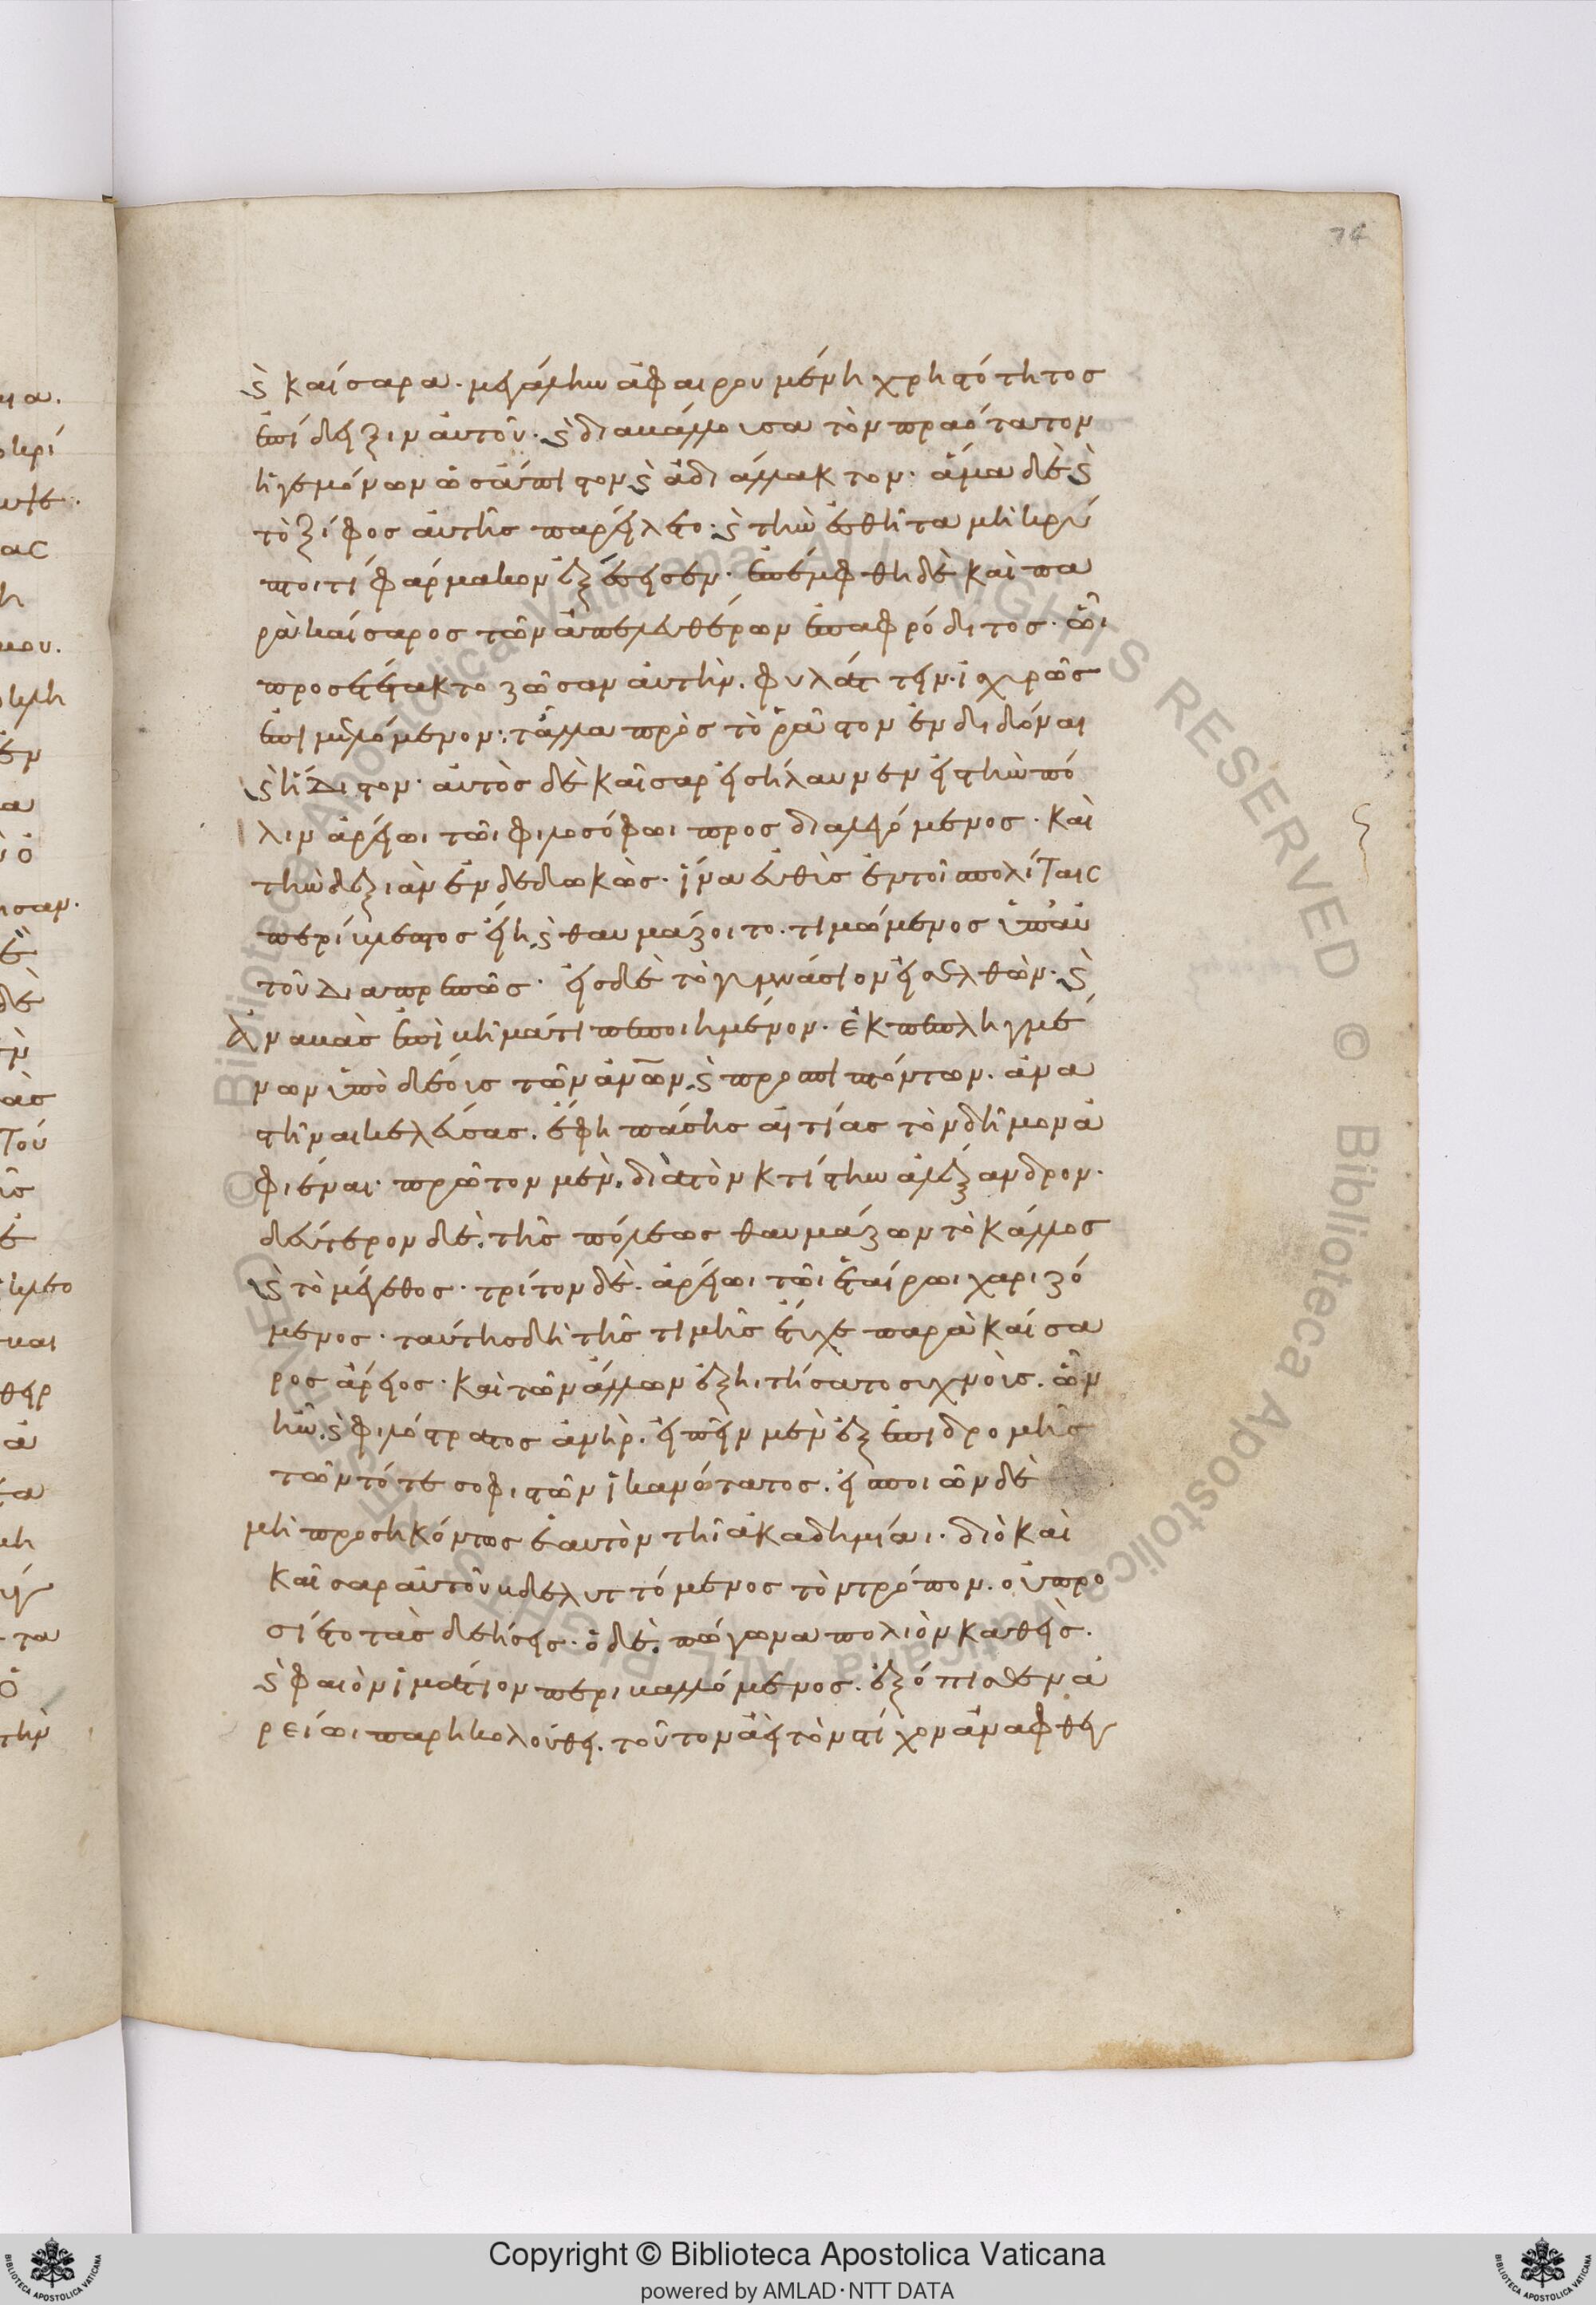 ϛ̀ καίσαρα· μεγάλην ἀφαιρουμένη χρηστότητος
ἐπίδειξιν αὐτοῦ· ϛ̀ διαβάλλουσα τὸν πραότατον
ἡγεμόνων ὡς ἄπιστον ϛ̀ ἀδιάλλακτον· ἅμα δὲ ϛ̀
τὸ ξίφος αὐτῆς παρείλετο· ϛ̀ τὴν ἐσθῆτα μὴ κρύ
πτοι τί φάρμακον ἐξέσεισεν· ἐπέμφθη δὲ καὶ πα
ρὰ καίσαρος τῶν ἀπελευθέρων ἐπαφρόδιτος· ὧι
προσετέτακτο ζῶσαν αὐτὴν. φυλάττειν ἰσχυρῶς
ἐπιμελόμενον· τἄλλα πρὸς τὸ ῥᾶστον ἐνδιδόναι
ϛ̀ ἥδιστον· αὐτὸς δὲ καῖσαρ εἰσήλαυνεν εἰς τὴν πό
λιν ἀρείωι τῶι φιλοσόφωι προσδιαλεγόμενος· καὶ
τὴν δεξιὰν ἐνδεδωκὼς· ἵνα εὐθὺς ἐν τοῖ πολίταις
περίβλεπτος εἴη. ϛ̀ θαυμάζοιτο. τιμώμενος ὑπ' αὐ
τοῦ διαπρεπῶς· εἰς δὲ τὸ γυμνάσιον εἰσελθὼν· ϛ̀
ἀναβὰς ἐπὶ βῆμά τι πεποιημένον· ἐκπεπληγμέ
νων ὑπὸ δέους τῶν ἀν̅ων. ϛ̀ προσπιπτόντων. ἀνα
στῆναι κελεύσας. ἔφη πάσης αἰτίας τὸν δῆμον ἀ
φιέναι· πρῶτον μὲν. διὰ τὸν κτίστην ἀλέξανδρον·
δεύτερον δὲ. τῆς πόλεως θαυμάζων τὸ κάλλος
ϛ̀ τὸ μέγεθος· τρίτον δὲ. ἀρείωι τῶι ἑταίρωι χαριζό
μενος· ταύτης δὴ τῆς τιμῆς ἔτυχε παρὰ καίσα
ρος ἄρειος· καὶ τῶν ἄλλων ἐξηιτήσατο συχνοὺς. ὧν
ἦν. ϛ̀ φιλόστρατος ἀνὴρ. εἰπεῖν μὲν ἐξ ἐπιδρομῆς
τῶν τότε σοφιστῶν ἱκανώτατος. εἰσποιῶν δὲ
μὴ προσηκόντως ἑαυτὸν τῆι ἀκαδημίαι· διὸ καὶ
καῖσαρ αὐτοῦ βδελυττόμενος τὸν τρόπον. οὐ προ
σίετο τὰς δεήσεις· ὁ δὲ. πώγωνα πολιὸν καθεὶς.
ϛ̀ φαιὸν ἱμάτιον περιβαλλόμενος. ἐξόπισθεν ἀ
ρείωι παρηκολούθει. τοῦτον ἀεὶ τὸν στίχον ἀναφθεγ